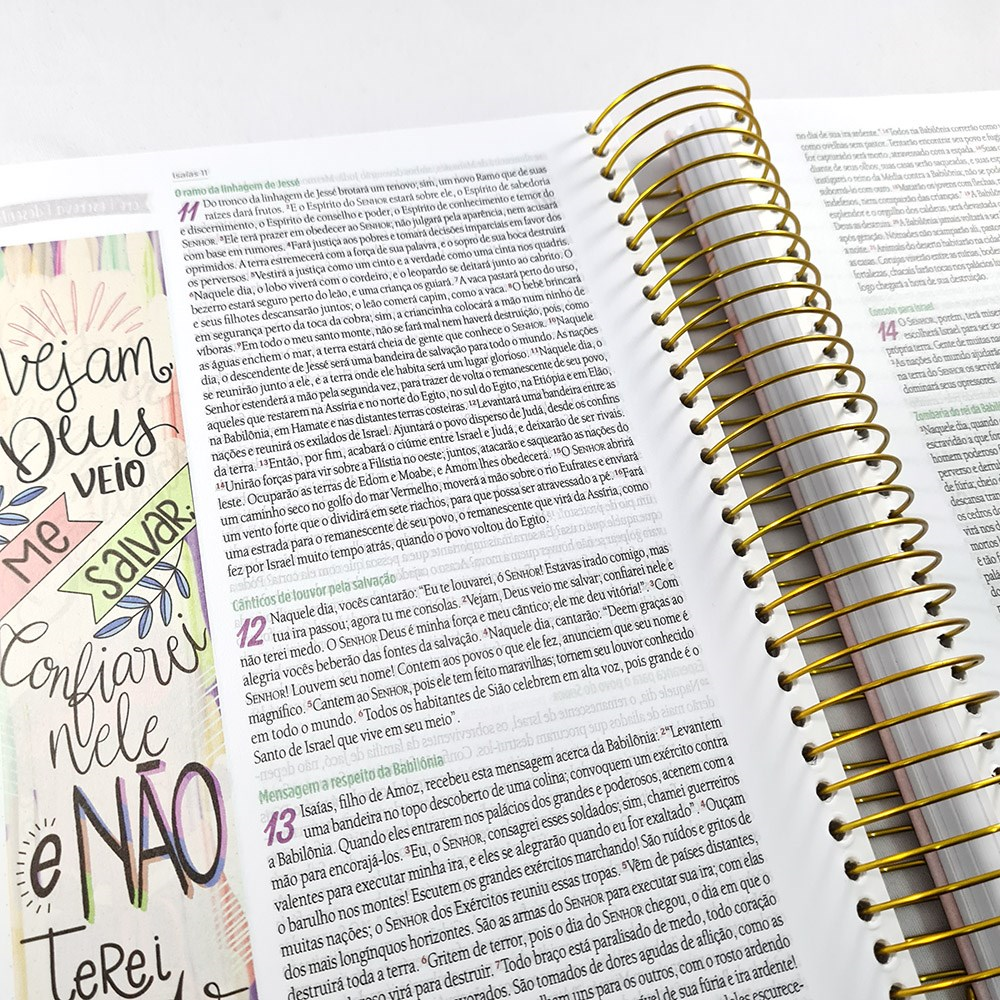 Vejam,
Deus
veio
me
salvar.
Confiarei
nele
e NÃO
Terei
Isaías 11
O ramo da linhagem de Jessé
11 Do tronco da linhagem de Jessé brotará um renovo; sim, um novo Ramo que de suas
raízes dará frutos. ²E o Espírito do SENHOR estará sobre ele, o Espírito de sabedoria
e discernimento, o Espírito de conselho e poder, o Espírito de conhecimento e temor do
SENHOR. ³Ele terá prazer em obedecer ao SENHOR; não julgará pela aparência, nem acusará
com base em rumores. ⁴Fará justiça aos pobres e tomará decisões imparciais em favor dos
oprimidos. A terra estremecerá com a força de sua palavra, e o sopro de sua boca destruirá
os perversos. ⁵Vestirá a justiça como um cinto e a verdade como uma cinta nos quadris.
⁶Naquele dia, o lobo viverá com o cordeiro, e o leopardo se deitará junto ao cabrito. O
bezerro estará seguro perto do leão, e uma criança os guiará. ⁷A vaca pastará perto do urso,
e seus filhotes descansarão juntos; o leão comerá capim, como a vaca. ⁸O bebê brincará
em segurança perto da toca da cobra; sim, a criancinha colocará a mão num ninho de
víboras. ⁹Em todo o meu santo monte, não se fará mal nem haverá destruição, pois, como
as águas enchem o mar, a terra estará cheia de gente que conhece o SENHOR. ¹⁰Naquele
dia, o descendente de Jessé será uma bandeira de salvação para todo o mundo. As nações
se reunirão junto a ele, e a terra onde ele habita será um lugar glorioso. ¹¹Naquele dia, o
Senhor estenderá a mão pela segunda vez, para trazer de volta o remanescente de seu povo,
aqueles que restarem na Assíria e no norte do Egito, no sul do Egito, na Etiópia e em Elão,
na Babilônia, em Hamate e nas distantes terras costeiras. ¹²Levantará uma bandeira entre as
nações e reunirá os exilados de Israel. Ajuntará o povo disperso de Judá, desde os confins
da terra. ¹³Então, por fim, acabará o ciúme entre Israel e Judá, e deixarão de ser rivais.
¹⁴Unirão forças para vir sobre a Filístia no oeste; juntos, atacarão e saquearão as nações do
leste. Ocuparão as terras de Edom e Moabe, e Amom lhes obedecerá. ¹⁵O SENHOR abrirá
um caminho seco no golfo do mar Vermelho, moverá a mão sobre o rio Eufrates e enviará
um vento forte que o dividirá em sete riachos, para que possa ser atravessado a pé. ¹⁶Fará
uma estrada para o remanescente de seu povo, o remanescente que virá da Assíria, como
fez por Israel muito tempo atrás, quando o povo voltou do Egito.
Cânticos de louvor pela salvação
12 Naquele dia, vocês cantarão: “Eu te louvarei, ó SENHOR! Estavas irado comigo, mas
tua ira passou; agora tu me consolas. ²Vejam, Deus veio me salvar; confiarei nele e
não terei medo. O SENHOR Deus é minha força e meu cântico; ele me deu vitória!”. ³Com
alegria vocês beberão das fontes da salvação. ⁴Naquele dia, cantarão: “Deem graças ao
SENHOR! Louvem seu nome! Contem aos povos o que ele fez, anunciem que seu nome é
magnífico. ⁵Cantem ao SENHOR, pois ele tem feito maravilhas; tornem seu louvor conhecido
em todo o mundo. ⁶Todos os habitantes de Sião celebrem em alta voz, pois grande é o
Santo de Israel que vive em seu meio”.
Mensagem a respeito da Babilônia
13 Isaías, filho de Amoz, recebeu esta mensagem acerca da Babilônia: ²“Levantem
uma bandeira no topo descoberto de uma colina; convoquem um exército contra
a Babilônia. Quando eles entrarem nos palácios dos grandes e poderosos, acenem com a
mão para encorajá-los. ³Eu, o SENHOR, consagrei esses soldados; sim, chamei guerreiros
valentes para executar minha ira, e eles se alegrarão quando eu for exaltado”. ⁴Ouçam
o barulho nos montes! Escutem os grandes exércitos marchando! São ruídos e gritos de
muitas nações; o SENHOR dos Exércitos reuniu essas tropas. ⁵Vêm de países distantes,
dos mais longínquos horizontes. São as armas do SENHOR para executar sua ira; com elas
destruirá toda a terra. ⁶Gritem de terror, pois o dia do SENHOR chegou, o dia em que o
virá para destruir. ⁷Todo braço está paralisado de medo, todo coração
São tomados de dores agudas de aflição, como as
uns para os outros, com o rosto ardendo
de sua fúria e ira ardente!
no dia de sua ira ardente. ¹⁴Todos na Babilônia correrão como
como ovelhas sem pastor. Tentarão encontrar seu povo e
for capturado será morto, atravessado com a espada.
Consolo para Israel
14 O SENHOR, porém, terá
escolherá Israel para ser
própria terra. Gente de muitas
As nações do mundo ajudarão
na terra do SENHOR os
dominará seus opressores.
Zombaria do rei da
Naquele dia, quando
escravidão a que
homem poderoso